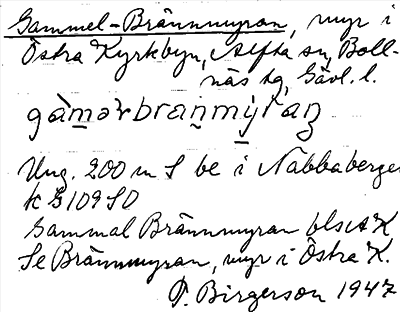 Gammel-Brännmyran, myr i
Östra Kyrkbyn, Alfta sn, Boll-
näs tg, Gävl. l.
Ung. 200 m S be i Nabbaberge
k G109 SO
Gammal Brännmyran blst K
Se Brännmyran, myr i Östra K.
P. Birgerson 1947